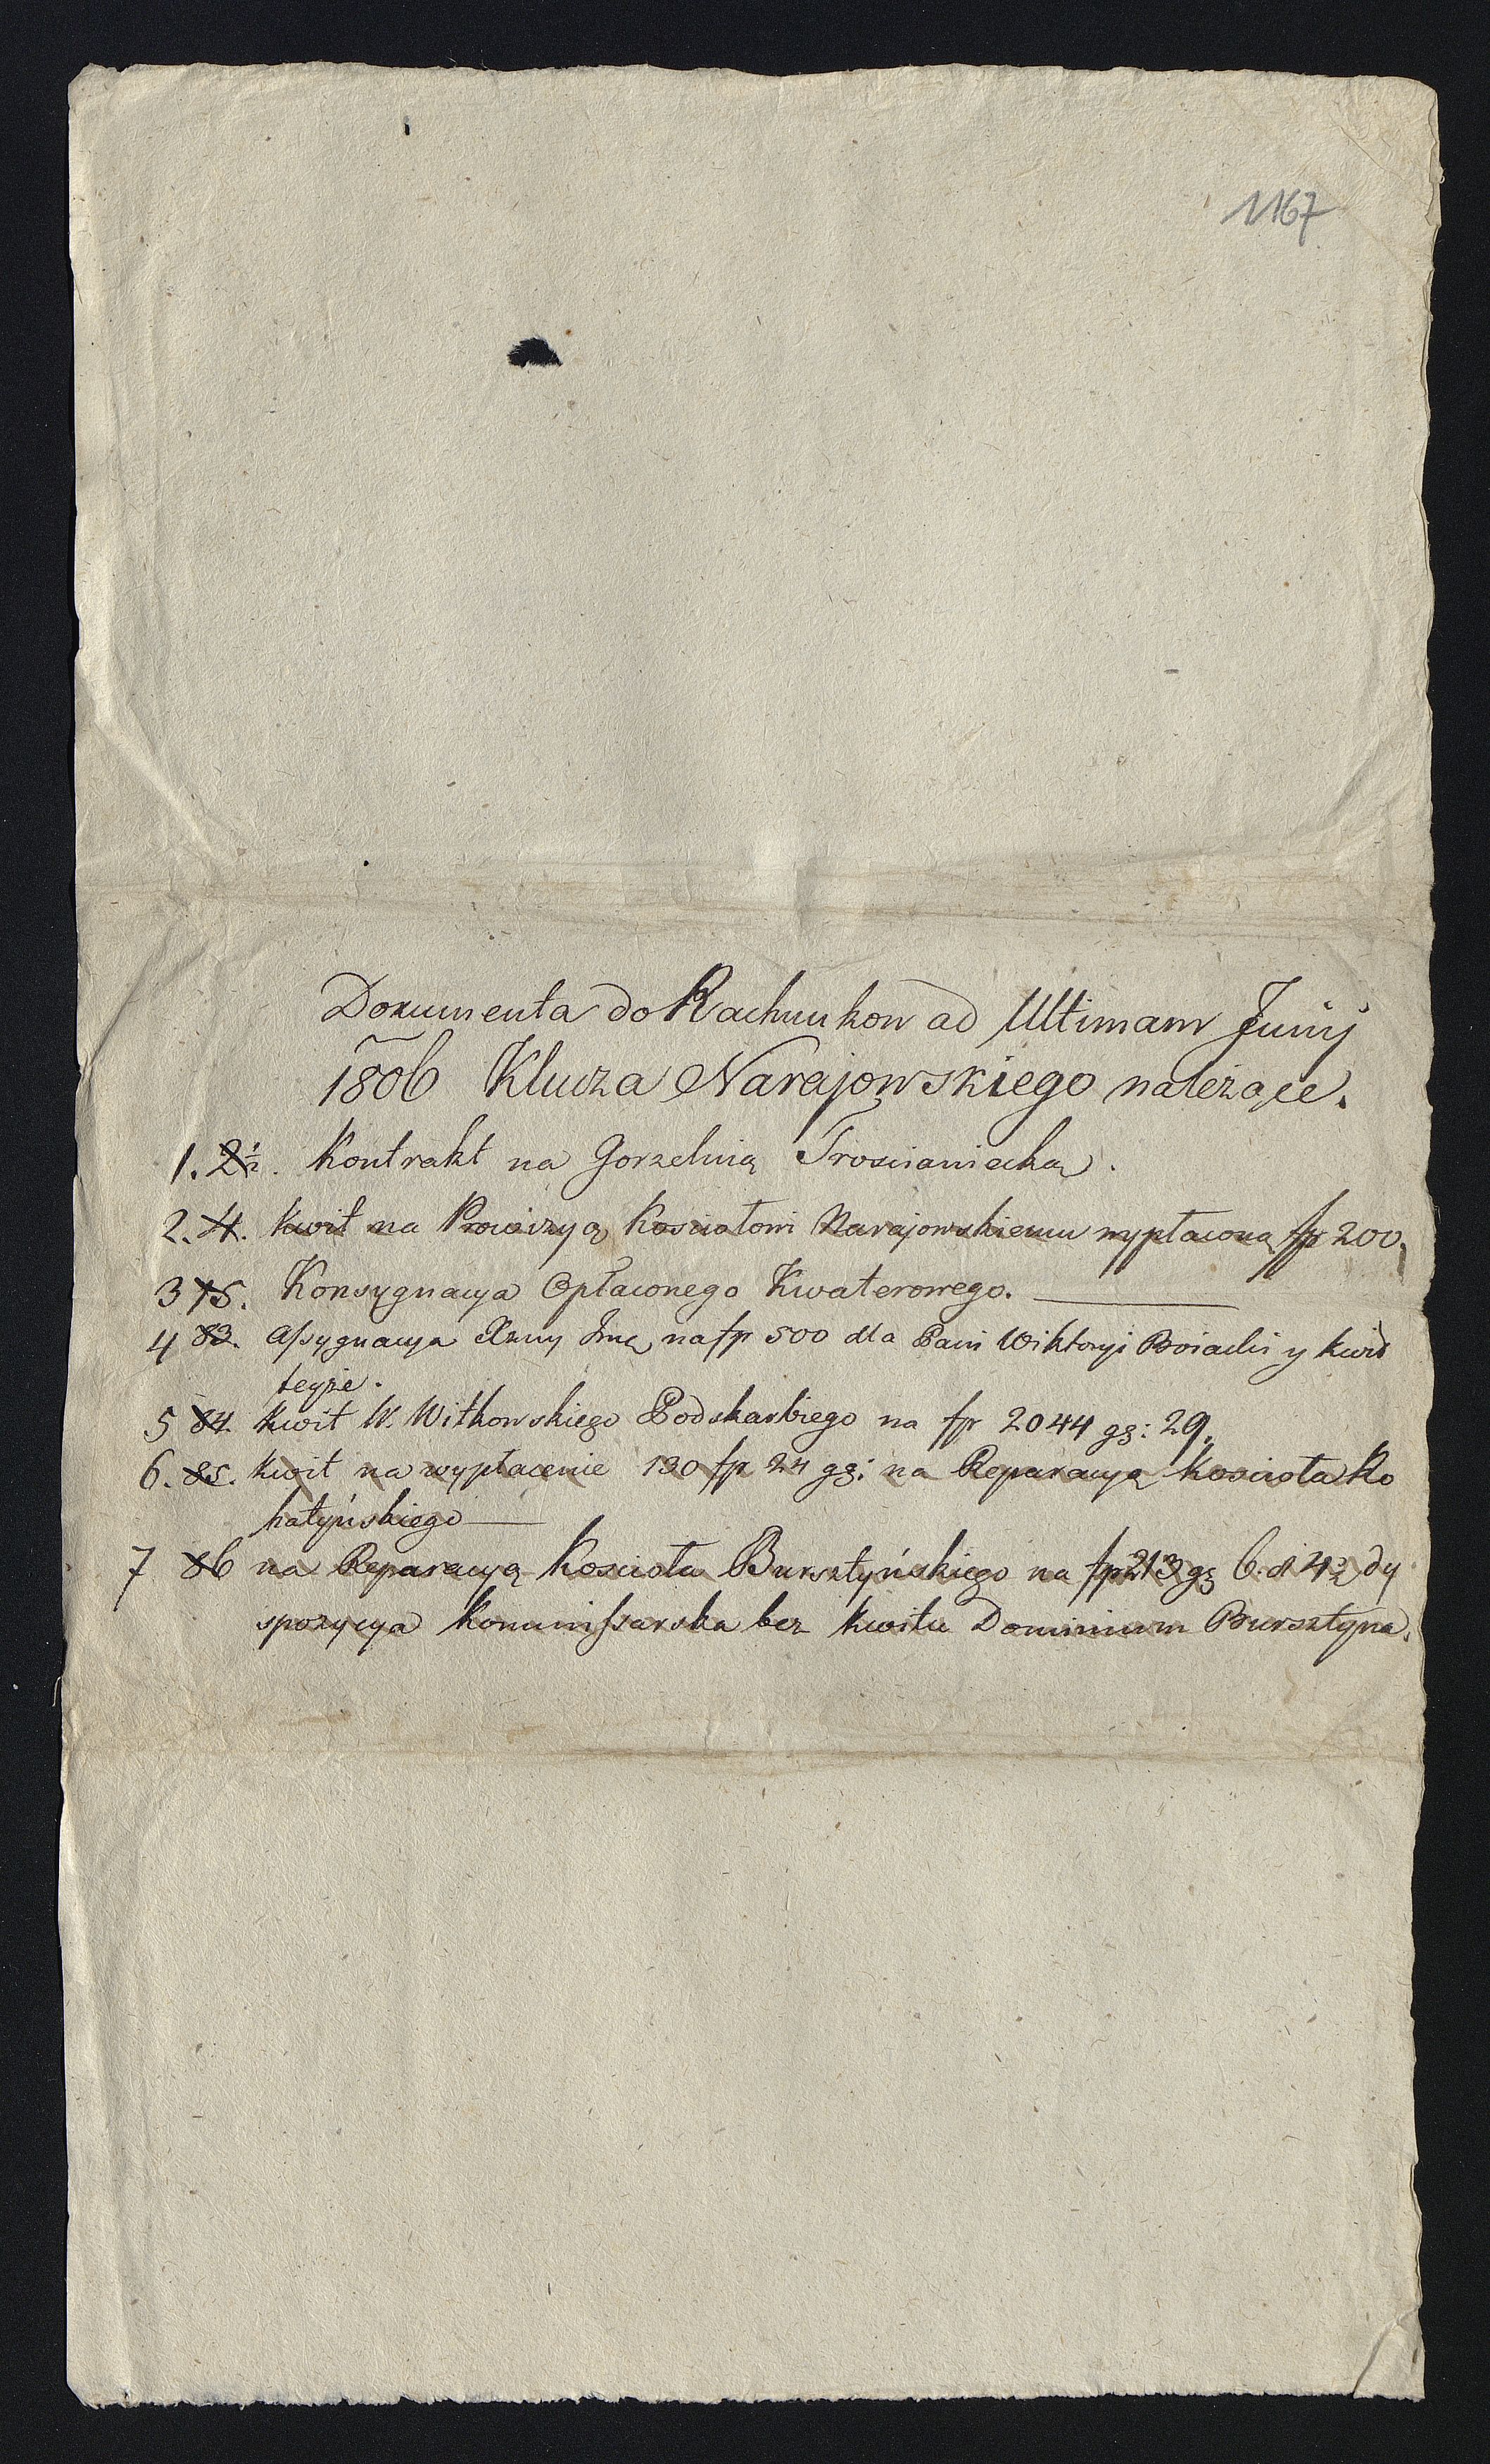 1167
Dokumenta do Rachunkow ad Ultimam Junij
1806 Klucza Narajowskiego należące.
1. 2½. Kontrakt na Gorzelnią Trościaniecką.
2. 4. Kwit na Prowizyą Kościołowi Narajowskiemu wypłaconą fp 200.
3 75. Konsygnacya Opłaconego Kwaterowego.
4 83. Assygnacya Xżny Jmę na fp 500 dla Pani Wiktoryi y kwit
teyże.
5 84. Kwit W. Witkowskiego Podskarbiego na fp 2044 gg: 29.
6. 85. Kwit na wypłacenie 130 fp 24 gg: na Reparacyą Kościoła Ro
hatyńskiego
7 86 na Reparacyą Kościoła Bursztyńskiego na fp 213 gg 6. dy
spozycya Kommissarska bez kwitu Dominium Bursztyna.